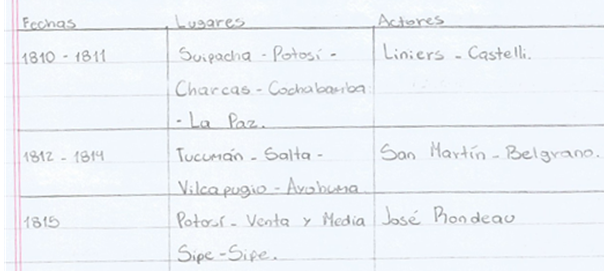 Fechas Lugares Actores
1810 - 1811 Suipacha - Potosí - Liniers - Castelli.
Charcas - Cochabamba
- La Paz.
1812 - 1814 Tucumán - Salta - San Martín - Belgrano.
Vilcapugio - Ayohuma
1815 Potosí - Venta y Media José Rondeau
Sipe - Sipe.